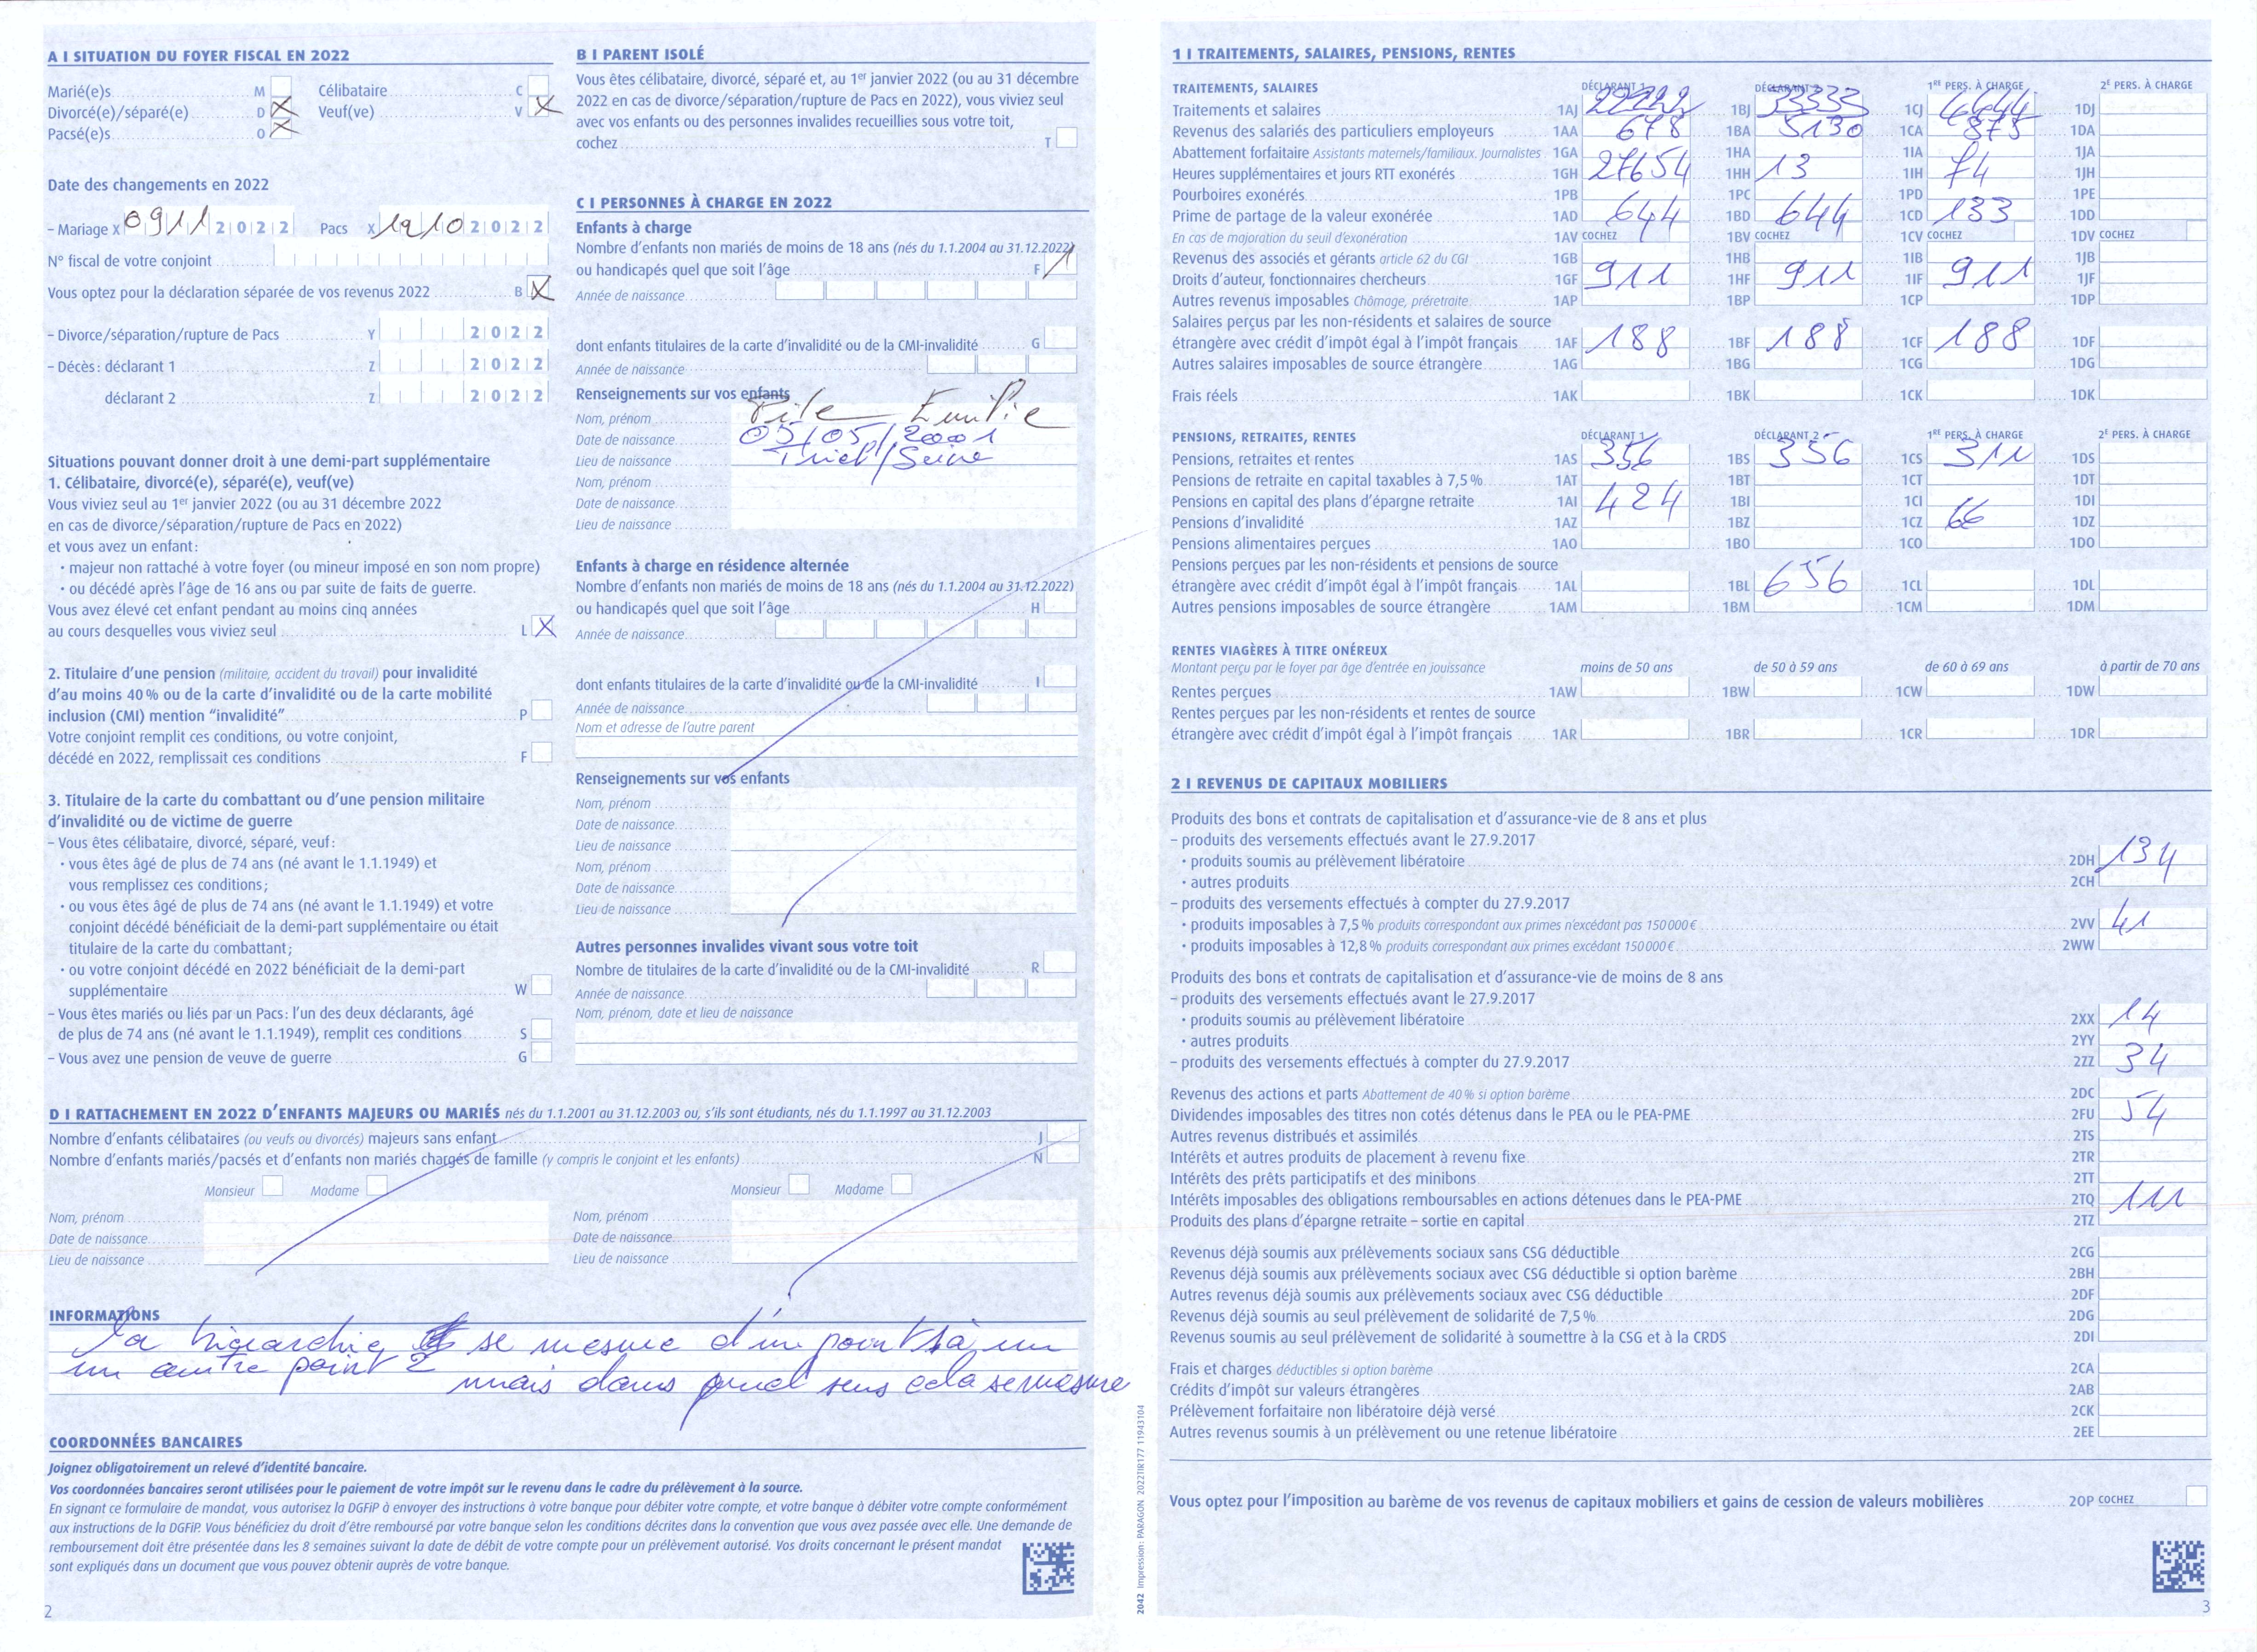 A I SITUATION DU FOYER FISCAL EN 2022
Marié(e)s M
Célibataire C
Divorcé(e)/séparé(e) D X
Veuf(ve) V X
Pacsé(e)s O X
Date des changements en 2022
– Mariage X 0911 2022 Pacs X 1910 2022
N° fiscal de votre conjoint
Vous optez pour la déclaration séparée de vos revenus 2022 B X
– Divorce/séparation/rupture de Pacs Y 2022
– Décès: déclarant 1 Z 2022
déclarant 2 Z 2022
Situations pouvant donner droit à une demi-part supplémentaire
1. Célibataire, divorcé(e), séparé(e), veuf(ve)
Vous viviez seul au 1er janvier 2022 (ou au 31 décembre 2022
en cas de divorce/séparation/rupture de Pacs en 2022)
et vous avez un enfant:
• majeur non rattaché à votre foyer (ou mineur imposé en son nom propre)
• ou décédé après l'âge de 16 ans ou par suite de faits de guerre.
Vous avez élevé cet enfant pendant au moins cinq années
au cours desquelles vous viviez seul L X
2. Titulaire d'une pension (militaire, accident du travail) pour invalidité
d'au moins 40 % ou de la carte d'invalidité ou de la carte mobilité
inclusion (CMI) mention "invalidité" P
Votre conjoint remplit ces conditions, ou votre conjoint,
décédé en 2022, remplissait ces conditions F
3. Titulaire de la carte du combattant ou d'une pension militaire
d'invalidité ou de victime de guerre
– Vous êtes célibataire, divorcé, séparé, veuf:
• vous êtes âgé de plus de 74 ans (né avant le 1.1.1949) et
vous remplissez ces conditions;
• ou vous êtes âgé de plus de 74 ans (né avant le 1.1.1949) et votre
conjoint décédé bénéficiait de la demi-part supplémentaire ou était
titulaire de la carte du combattant;
• ou votre conjoint décédé en 2022 bénéficiait de la demi-part
supplémentaire W
– Vous êtes mariés ou liés par un Pacs: l'un des deux déclarants, âgé
de plus de 74 ans (né avant le 1.1.1949), remplit ces conditions S
– Vous avez une pension de veuve de guerre G
B I PARENT ISOLÉ
Vous êtes célibataire, divorcé, séparé et, au 1er janvier 2022 (ou au 31 décembre
2022 en cas de divorce/séparation/rupture de Pacs en 2022), vous viviez seul
avec vos enfants ou des personnes invalides recueillies sous votre toit,
cochez T
C I PERSONNES À CHARGE EN 2022
Enfants à charge
Nombre d'enfants non mariés de moins de 18 ans (nés du 1.1.2004 au 31.12.2022)
ou handicapés quel que soit l'âge F 1
Année de naissance
dont enfants titulaires de la carte d'invalidité ou de la CMI-invalidité G
Année de naissance
Renseignements sur vos enfants
Nom, prénom Pile Emilie
Date de naissance 05/05/2001
Lieu de naissance Triel/Seine
Nom, prénom
Date de naissance
Lieu de naissance
Enfants à charge en résidence alternée
Nombre d'enfants non mariés de moins de 18 ans (nés du 1.1.2004 au 31.12.2022)
ou handicapés quel que soit l'âge H
Année de naissance
dont enfants titulaires de la carte d'invalidité ou de la CMI-invalidité I
Année de naissance
Nom et adresse de l'autre parent
Renseignements sur vos enfants
Nom, prénom
Date de naissance
Lieu de naissance
Nom, prénom
Date de naissance
Lieu de naissance
Autres personnes invalides vivant sous votre toit
Nombre de titulaires de la carte d'invalidité ou de la CMI-invalidité R
Année de naissance
Nom, prénom, date et lieu de naissance
D I RATTACHEMENT EN 2022 D'ENFANTS MAJEURS OU MARIÉS nés du 1.1.2001 au 31.12.2003 ou, s'ils sont étudiants, nés du 1.1.1997 au 31.12.2003
Nombre d'enfants célibataires (ou veufs ou divorcés) majeurs sans enfant J
Nombre d'enfants mariés/pacsés et d'enfants non mariés chargés de famille (y compris le conjoint et les enfants) N
Monsieur Madame Monsieur Madame
Nom, prénom Nom, prénom
Date de naissance Date de naissance
Lieu de naissance Lieu de naissance
INFORMATIONS
La hiérarchie se mesure d'un point 1 à un
un autre point 2
mais dans quel sens cela se mesure
COORDONNÉES BANCAIRES
Joignez obligatoirement un relevé d'identité bancaire.
Vos coordonnées bancaires seront utilisées pour le paiement de votre impôt sur le revenu dans le cadre du prélèvement à la source.
En signant ce formulaire de mandat, vous autorisez la DGFiP à envoyer des instructions à votre banque pour débiter votre compte, et votre banque à débiter votre compte conformément
aux instructions de la DGFiP. Vous bénéficiez du droit d'être remboursé par votre banque selon les conditions décrites dans la convention que vous avez passée avec elle. Une demande de
remboursement doit être présentée dans les 8 semaines suivant la date de débit de votre compte pour un prélèvement autorisé. Vos droits concernant le présent mandat
sont expliqués dans un document que vous pouvez obtenir auprès de votre banque.
2
2042 Impression: PARAGON 2022TIR177 11943104
1 I TRAITEMENTS, SALAIRES, PENSIONS, RENTES
TRAITEMENTS, SALAIRES DÉCLARANT 1 DÉCLARANT 2 1RE PERS. À CHARGE 2E PERS. À CHARGE
Traitements et salaires 1AJ 22222 1BJ 33333 1CJ 4444 1DJ
Revenus des salariés des particuliers employeurs 1AA 678 1BA 5130 1CA 875 1DA
Abattement forfaitaire Assistants maternels/familiaux, Journalistes 1GA 1HA 1IA 1JA
Heures supplémentaires et jours RTT exonérés 1GH 27654 1HH 13 1IH 74 1JH
Pourboires exonérés 1PB 1PC 1PD 1PE
Prime de partage de la valeur exonérée 1AD 644 1BD 644 1CD 133 1DD
En cas de majoration du seuil d'exonération 1AV COCHEZ 1BV COCHEZ 1CV COCHEZ 1DV COCHEZ
Revenus des associés et gérants article 62 du CGI 1GB 1HB 1IB 1JB
Droits d'auteur, fonctionnaires chercheurs 1GF 911 1HF 911 1IF 911 1JF
Autres revenus imposables Chômage, préretraite 1AP 1BP 1CP 1DP
Salaires perçus par les non-résidents et salaires de source
étrangère avec crédit d'impôt égal à l'impôt français 1AF 188 1BF 188 1CF 188 1DF
Autres salaires imposables de source étrangère 1AG 1BG 1CG 1DG
Frais réels 1AK 1BK 1CK 1DK
PENSIONS, RETRAITES, RENTES DÉCLARANT 1 DÉCLARANT 2 1RE PERS. À CHARGE 2E PERS. À CHARGE
Pensions, retraites et rentes 1AS 356 1BS 356 1CS 311 1DS
Pensions de retraite en capital taxables à 7,5 % 1AT 1BT 1CT 1DT
Pensions en capital des plans d'épargne retraite 1AI 424 1BI 1CI 1DI
Pensions d'invalidité 1AZ 1BZ 1CZ 66 1DZ
Pensions alimentaires perçues 1AO 1BO 1CO 1DO
Pensions perçues par les non-résidents et pensions de source
étrangère avec crédit d'impôt égal à l'impôt français 1AL 1BL 656 1CL 1DL
Autres pensions imposables de source étrangère 1AM 1BM 1CM 1DM
RENTES VIAGÈRES À TITRE ONÉREUX
Montant perçu par le foyer par âge d'entrée en jouissance moins de 50 ans de 50 à 59 ans de 60 à 69 ans à partir de 70 ans
Rentes perçues 1AW 1BW 1CW 1DW
Rentes perçues par les non-résidents et rentes de source
étrangère avec crédit d'impôt égal à l'impôt français 1AR 1BR 1CR 1DR
2 I REVENUS DE CAPITAUX MOBILIERS
Produits des bons et contrats de capitalisation et d'assurance-vie de 8 ans et plus
– produits des versements effectués avant le 27.9.2017
• produits soumis au prélèvement libératoire 2DH 134
• autres produits 2CH
– produits des versements effectués à compter du 27.9.2017
• produits imposables à 7,5 % produits correspondant aux primes n'excédant pas 150 000 € 2VV 41
• produits imposables à 12,8 % produits correspondant aux primes excédant 150 000 € 2WW
Produits des bons et contrats de capitalisation et d'assurance-vie de moins de 8 ans
– produits des versements effectués avant le 27.9.2017
• produits soumis au prélèvement libératoire 2XX 14
• autres produits 2YY
– produits des versements effectués à compter du 27.9.2017 2ZZ 34
Revenus des actions et parts Abattement de 40 % si option barème 2DC
Dividendes imposables des titres non cotés détenus dans le PEA ou le PEA-PME 2FU 54
Autres revenus distribués et assimilés 2TS
Intérêts et autres produits de placement à revenu fixe 2TR
Intérêts des prêts participatifs et des minibons 2TT
Intérêts imposables des obligations remboursables en actions détenues dans le PEA-PME 2TQ 111
Produits des plans d'épargne retraite – sortie en capital 2TZ
Revenus déjà soumis aux prélèvements sociaux sans CSG déductible 2CG
Revenus déjà soumis aux prélèvements sociaux avec CSG déductible si option barème 2BH
Autres revenus déjà soumis aux prélèvements sociaux avec CSG déductible 2DF
Revenus déjà soumis au seul prélèvement de solidarité de 7,5 % 2DG
Revenus soumis au seul prélèvement de solidarité à soumettre à la CSG et à la CRDS 2DI
Frais et charges déductibles si option barème 2CA
Crédits d'impôt sur valeurs étrangères 2AB
Prélèvement forfaitaire non libératoire déjà versé 2CK
Autres revenus soumis à un prélèvement ou une retenue libératoire 2EE
Vous optez pour l'imposition au barème de vos revenus de capitaux mobiliers et gains de cession de valeurs mobilières 2OP COCHEZ
3